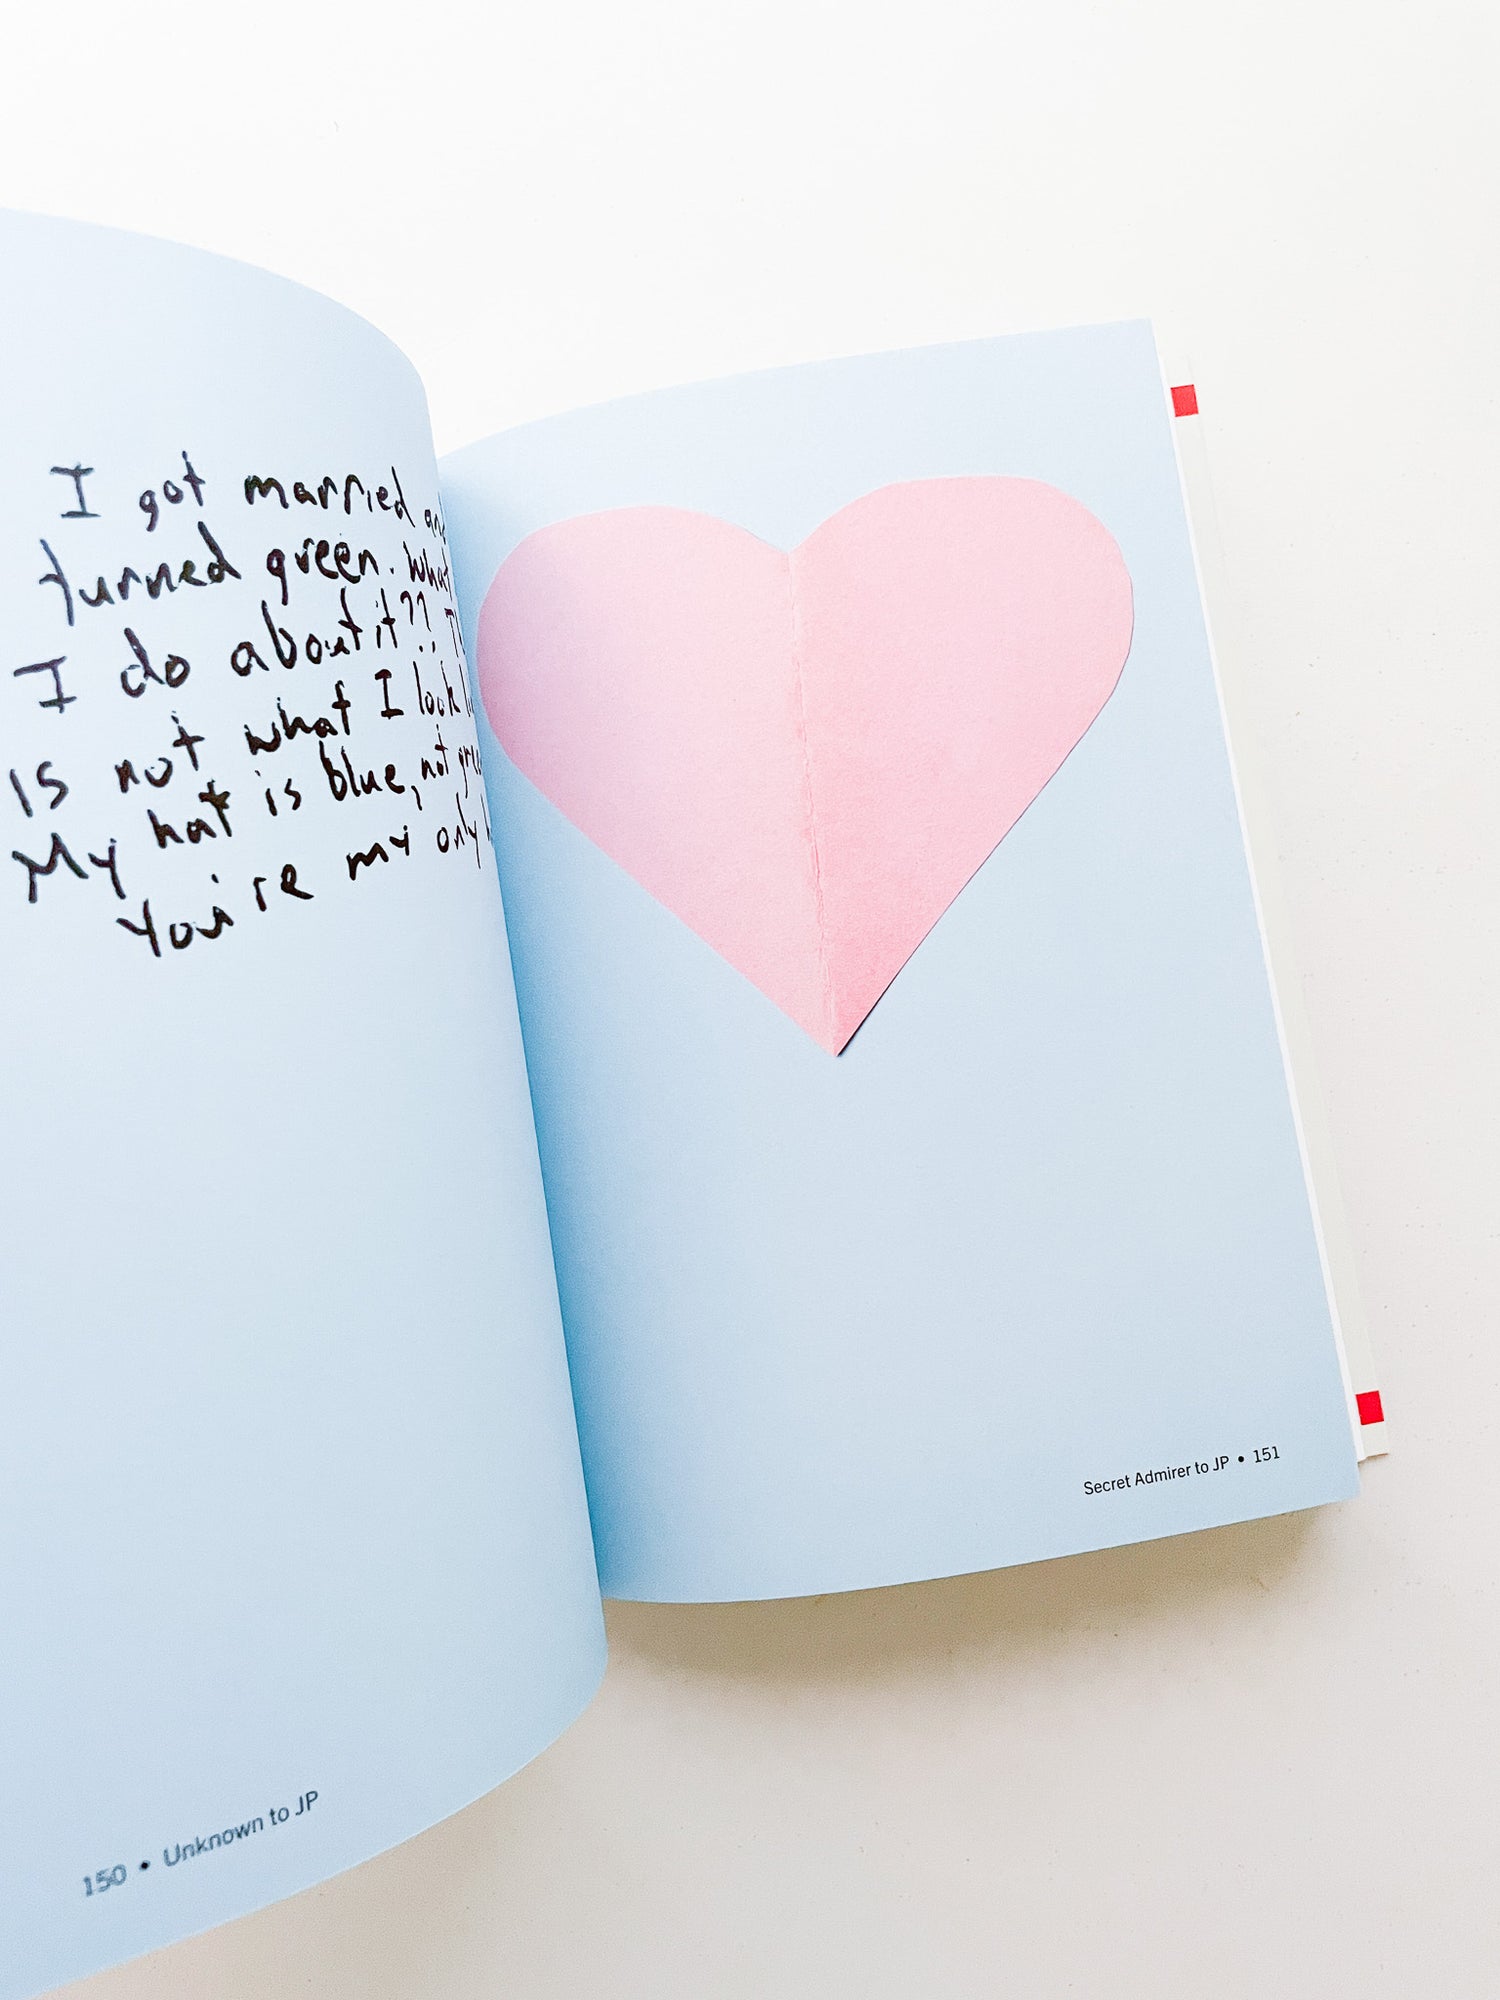 I got married
turned green. What
I do about it??
is not what I look
My hat is blue, not
You're my only
150 • Unknown to JP
Secret Admirer to JP • 151